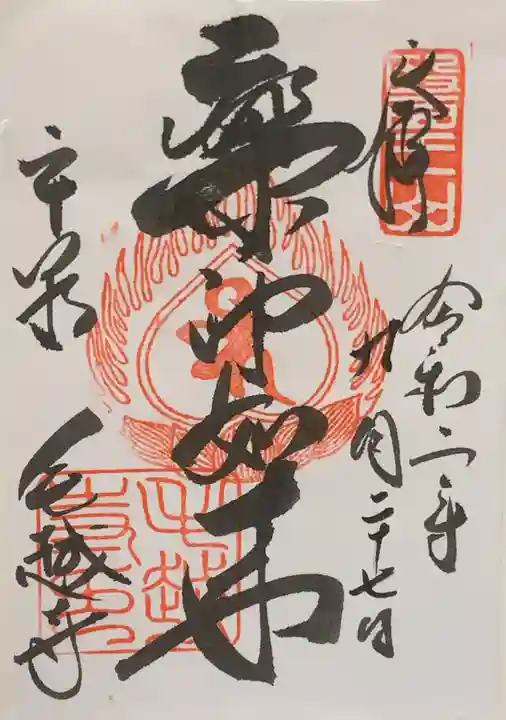 奉拝
令和二年
月二十七日
薬師如来
平泉
毛越寺